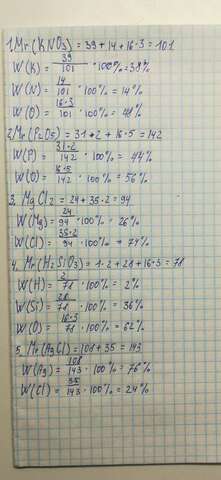 1. Mr(KNO3) = 39+14+16·3 = 101
W(K) = 39/101 · 100% = 38%
W(N) = 14/101 · 100% = 14%
W(O) = 16·3/101 · 100% = 48%
2. Mr(P2O5) = 31·2+16·5 = 142
W(P) = 31·2/142 · 100% = 44%
W(O) = 16·5/142 · 100% = 56%
3. MgCl2 = 24+35·2 = 94
W(Mg) = 24/94 · 100% = 26%
W(Cl) = 35·2/94 · 100% = 74%
4. Mr(H2SiO3) = 1·2+28+16·3 = 78
W(H) = 2/78 · 100% = 2%
W(Si) = 28/78 · 100% = 36%
W(O) = 16·3/78 · 100% = 62%
5. Mr(AgCl) = 108+35 = 143
W(Ag) = 108/143 · 100% = 76%
W(Cl) = 35/143 · 100% = 24%